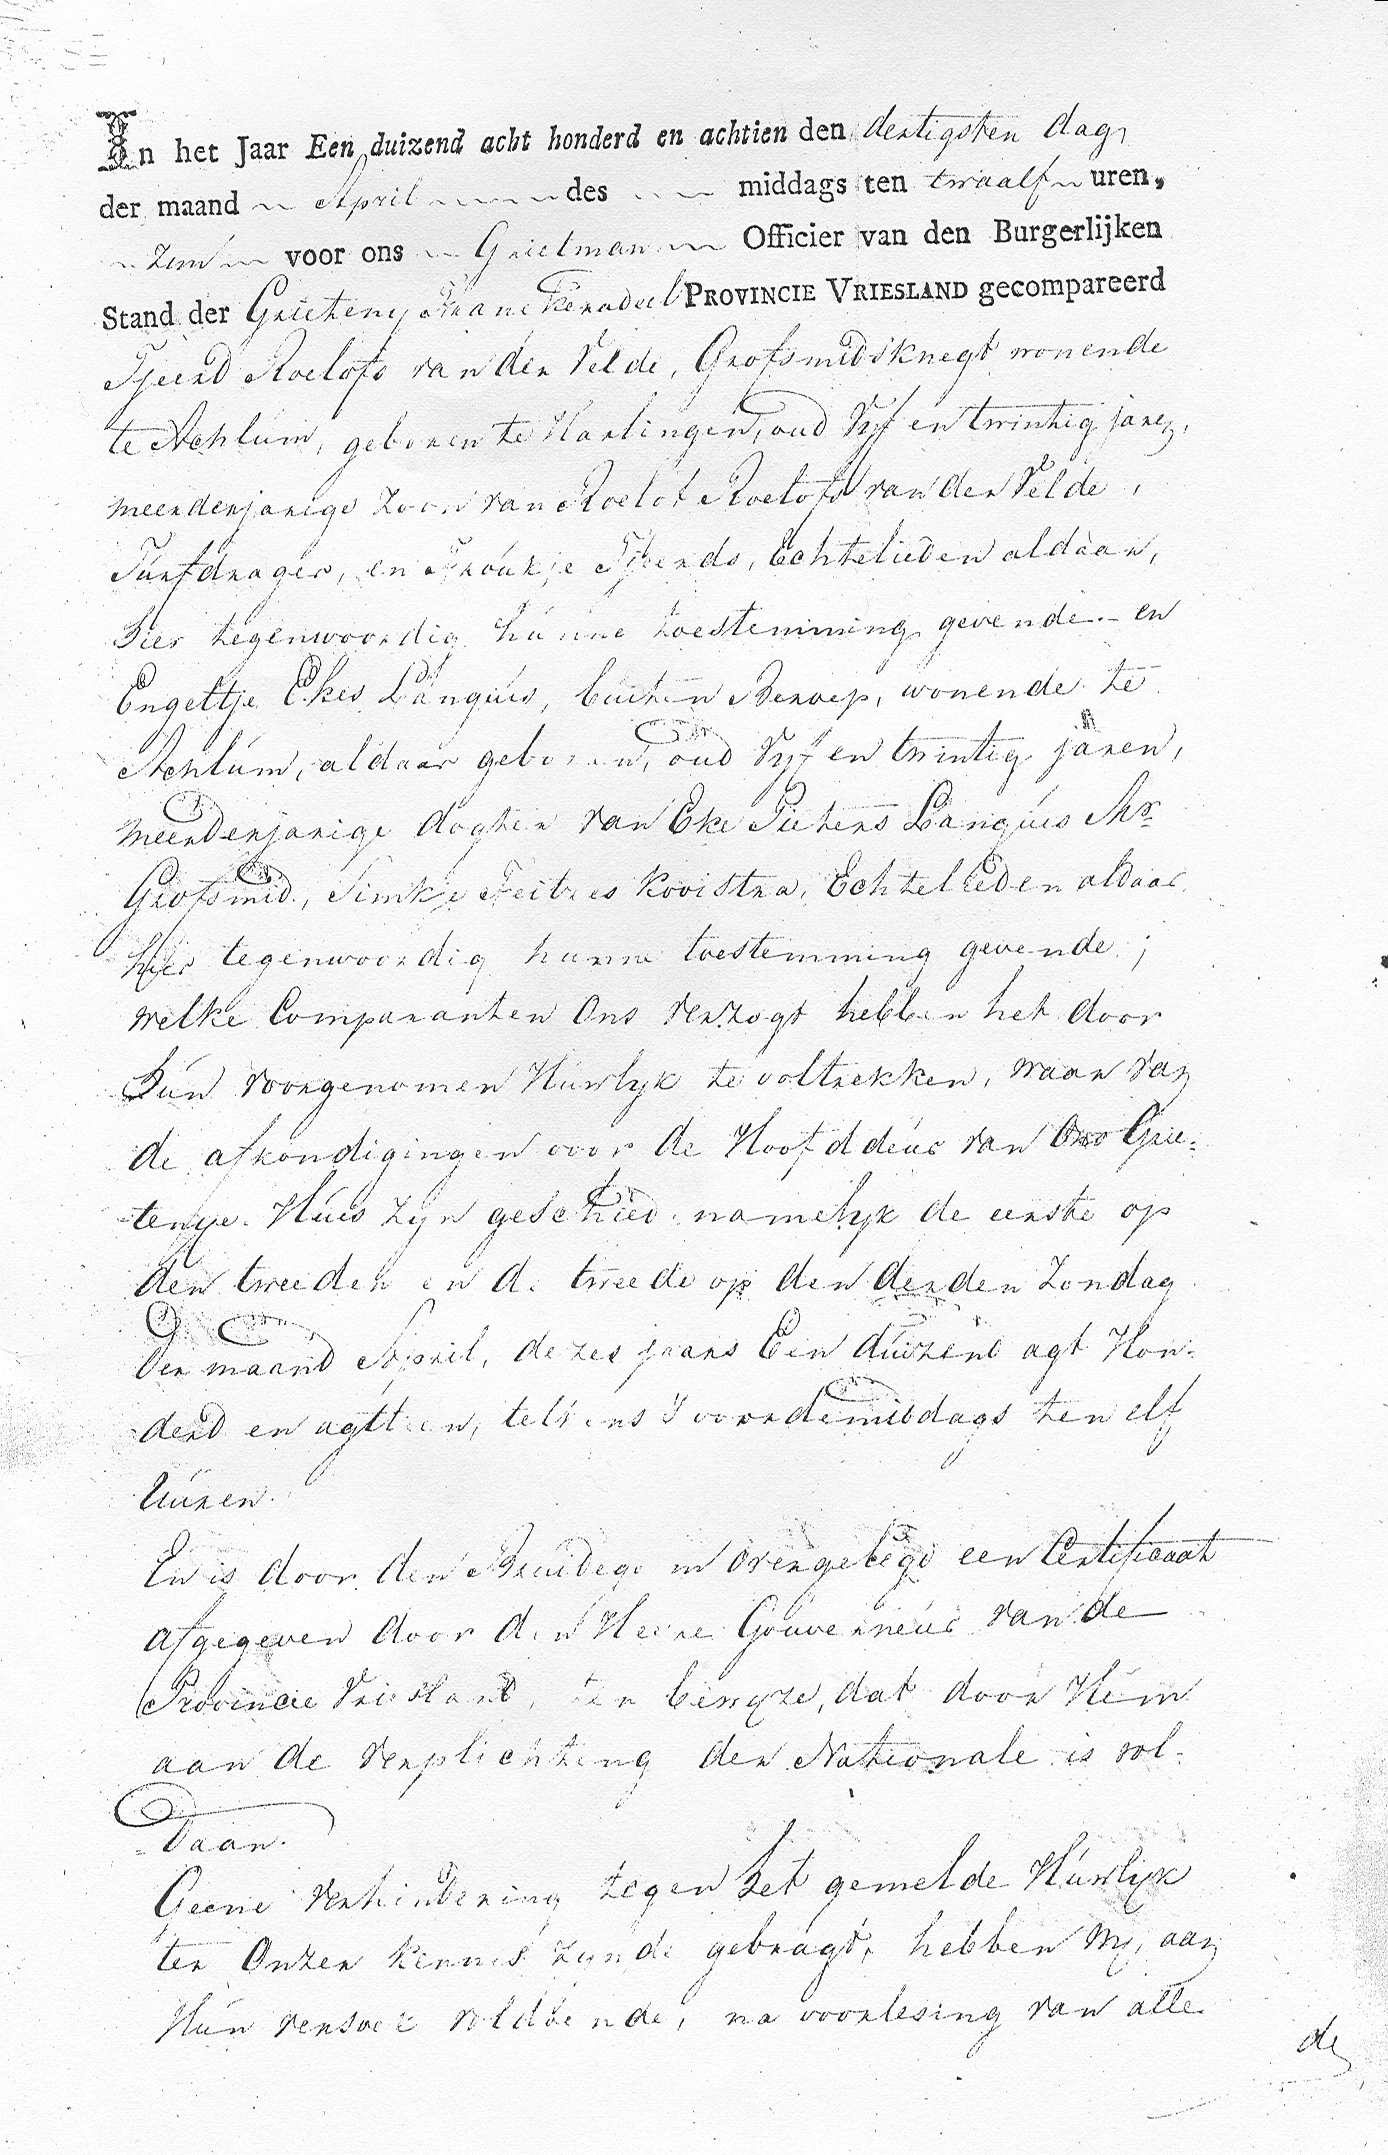 In het Jaar Een duizend acht honderd en achtien den dertigsten dag
der maand April des middags ten twaalf uren,
zyn voor ons Grietman Officier van den Burgerlijken
Stand der Grieteny Franekeradeel PROVINCIE VRIESLAND gecompareerd
Tjeerd Roelofs van der Velde, Grofsmidsknegt wonende
te Achlum, geboren te Harlingen, oud Vyf en twintig jaren,
meerderjarige zoon van Roelof Roelofs van der Velde,
Turfdrager, en Froukje Tjeerds, Echtelieden aldaar,
hier tegenwoordig hunne toestemming gevende en
Engeltje Ekes Languis, buiten Beroep, wonende te
Achlum, aldaar geboren, oud Vyf en twintig jaren,
meerderjarige dogter van Eke Pieters Languis Mr
Grofsmid, Simke Feitzes Kooistra, Echtelieden aldaar
hier tegenwoordig hunne toestemming gevende;
welke Comparanten Ons verzogt hebben het door
hun voorgenomen Huwlyk te voltrekken, waar van
de afkondigingen voor de Hoofddeur van Ons Grie-
tenye Huis zyn geschied, namelyk de eerste op
den tweeden en de tweede op den derden Zondag
der maand April, dezes jaars Een duizend agt Hon-
derd en agttien, telkens 's voordemiddags ten elf
Uuren.
En is door den Bruidegom overgelegd een Certificaat
afgegeven door den Heere Gouverneur van de
Provincie Vriesland, ten bewyze, dat door Hem
aan de verplichting der Nationale is vol-
-daan.
Geene verhindering tegen het gemelde Huwlyk
ter Onzer kennis zynde gebragt, hebben Wy, aan
Hun versoek voldoende, na voorlesing van alle
de